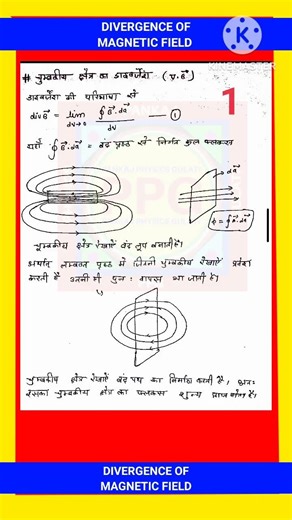 DIVERGENCE OF
MAGNETIC FIELD
K
KINEMASTER
# चुम्बकीय क्षेत्र का डायवर्जेंस (∇.B⃗)
1
डायवर्जेंस की परिभाषा से
div B⃗ = lim dv→0 ∮B⃗.da⃗ / dv — ①
यहाँ ∮B⃗.da⃗ = बंद पृष्ठ से निर्गत कुल फ्लक्स
da⃗
ϕ = ∮B⃗.da⃗
चुम्बकीय क्षेत्र रेखाएँ बंद लूप बनाती है।
अर्थात् पृष्ठ में जितनी चुम्बकीय रेखाएँ प्रवेश
करती है उतनी ही पुनः वापस आ जाती है।
चुम्बकीय क्षेत्र रेखाएँ बंद पथ का निर्माण करती है, अतः
इसका चुम्बकीय क्षेत्र का फ्लक्स शून्य प्राप्त होता है।
DIVERGENCE OF
MAGNETIC FIELD